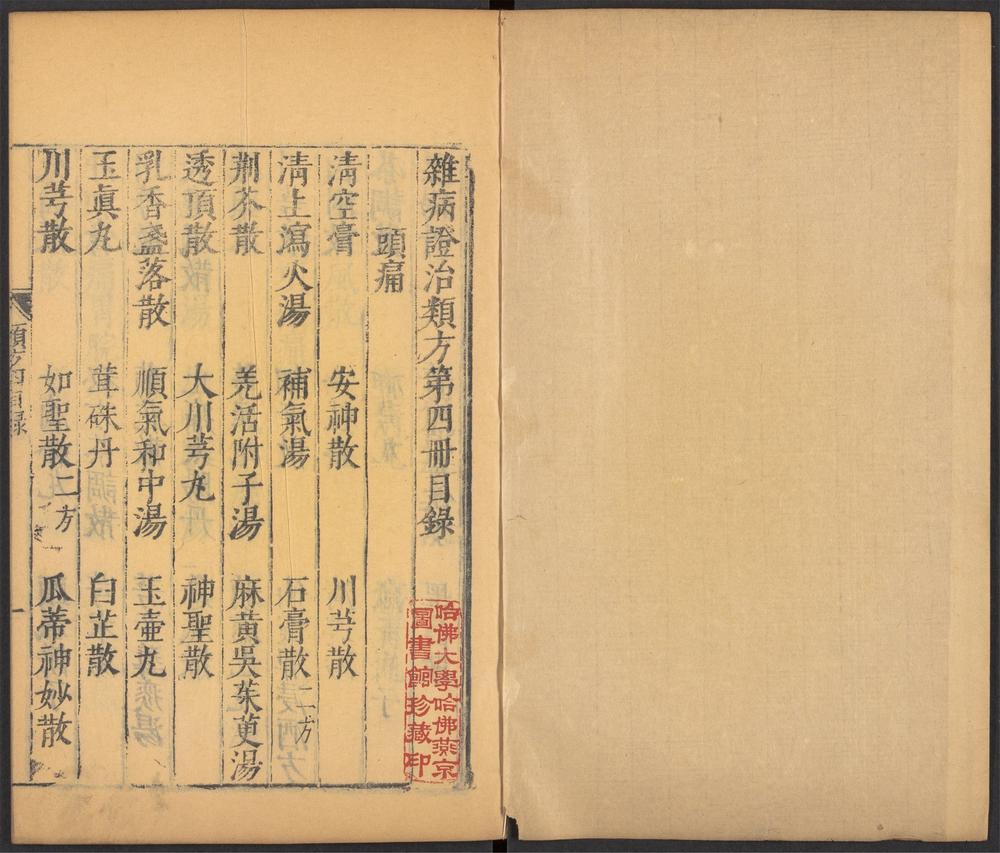 雜病證治類方第四冊目錄
頭痛
清空膏 安神散 川芎散
清上瀉火湯 補氣湯 石膏散二方
荆芥散 羌活附子湯 麻黃吳茱萸湯
透頂散 大川芎丸 神聖散
乳香盞落散 順氣和中湯 玉壺丸
玉眞丸 葺硃丹 白芷散
川芎散 如聖散二方 瓜蒂神妙散
類方四目錄
一
哈佛大學哈佛燕京
圖書館珍藏印